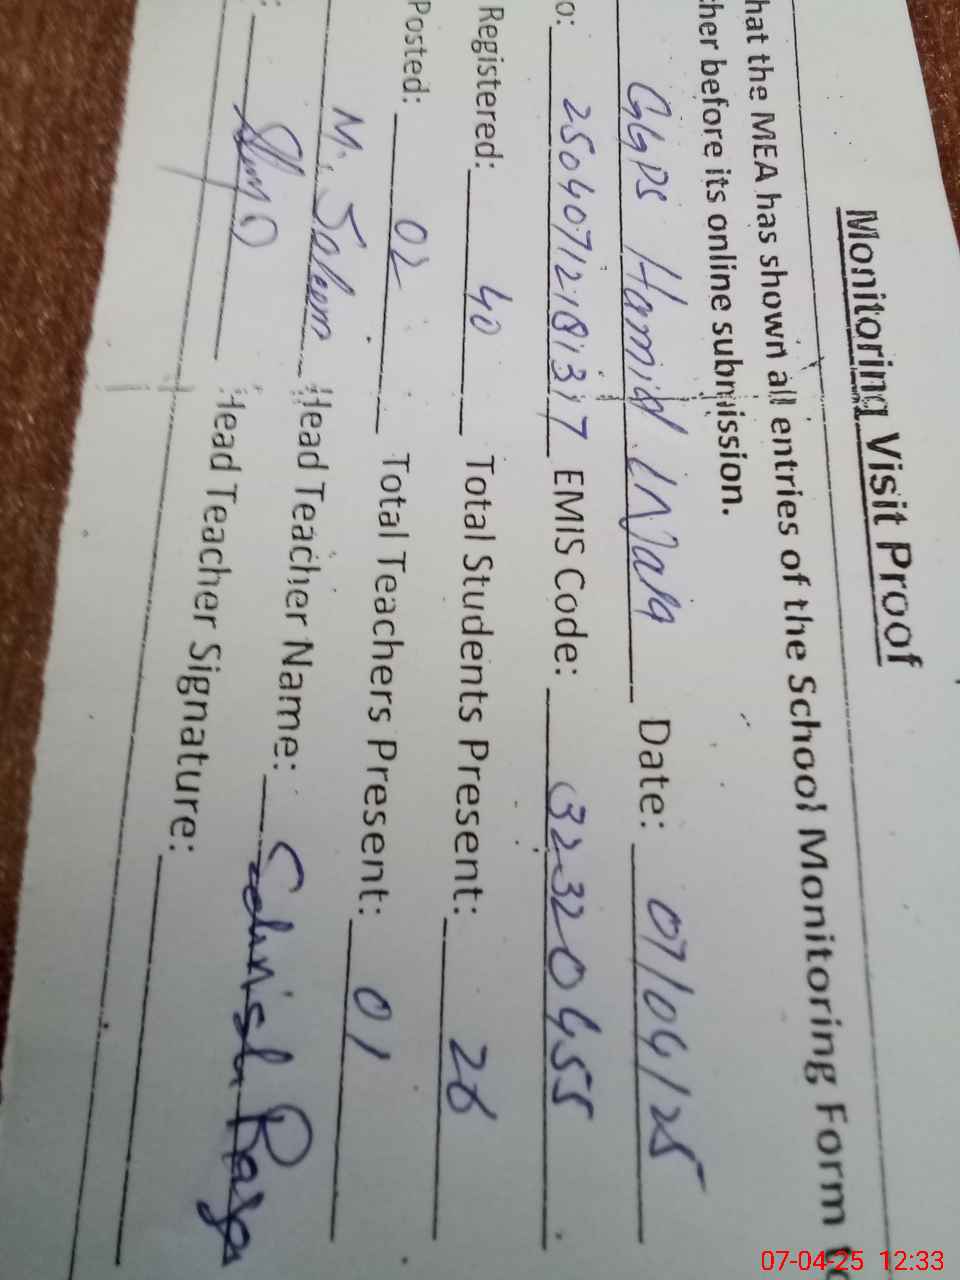 Monitoring Visit Proof
hat the MEA has shown all entries of the School Monitoring Form to
her before its online submission.
GGPS Hamid Wala Date: 07/04/25
o: 25040712181317 EMIS Code: 32320455
Registered: 40 Total Students Present: 26
Posted: 02 Total Teachers Present: 01
M. Saleem Head Teacher Name:
: Head Teacher Signature:
07-04-25 12:33